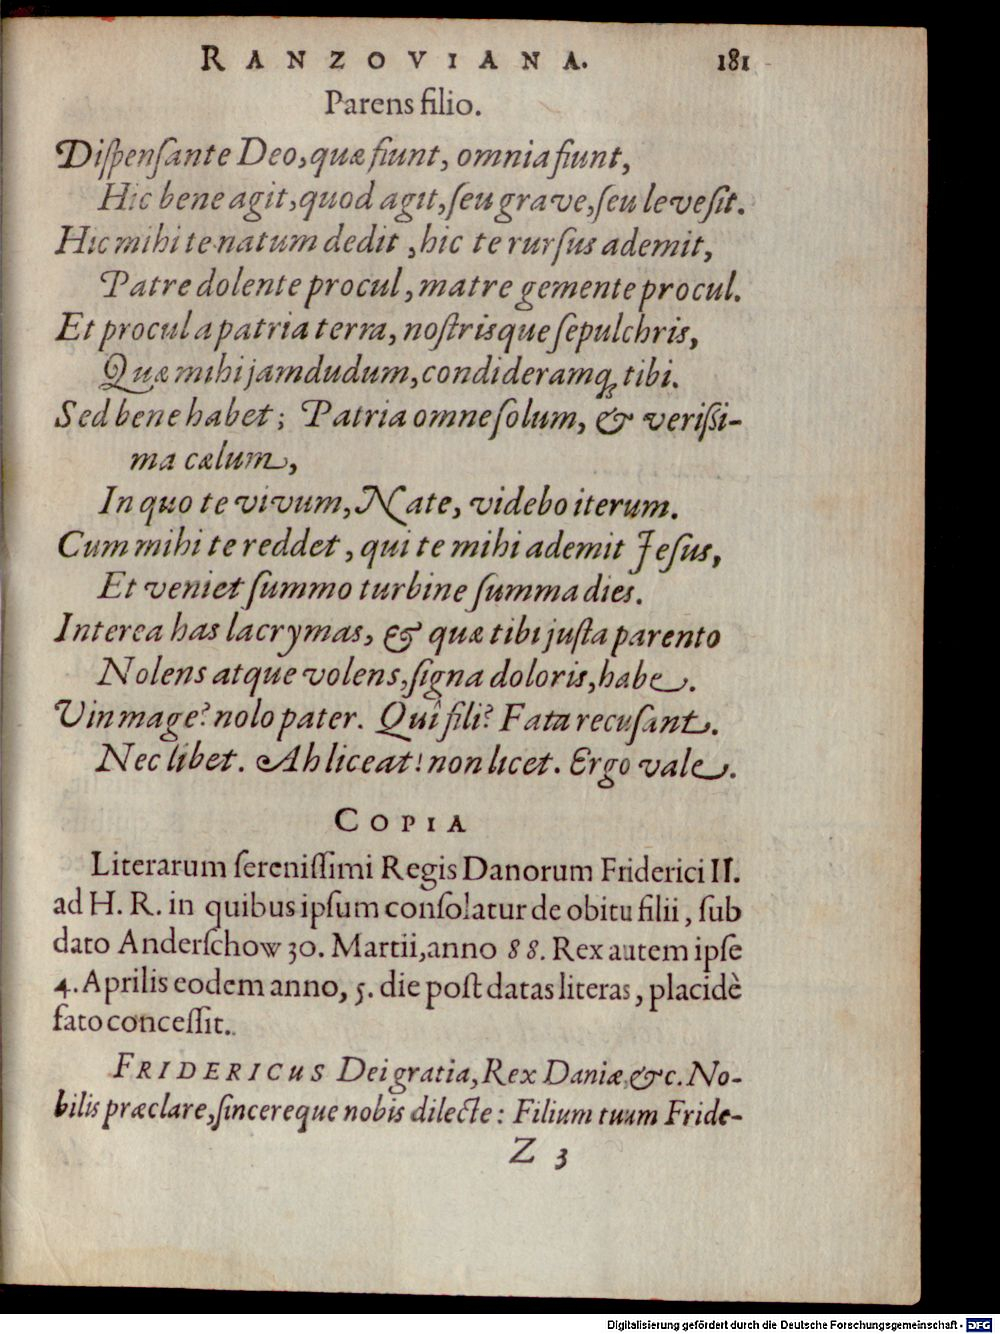 RANZOVIANA. 181
Parens filio.
Diſpenſante Deo, quæ fiunt, omnia fiunt,
Hic bene agit, quod agit, ſeu grave, ſeu leve ſit.
Hic mihi te natum dedit, hic te rurſus ademit,
Patre dolente procul, matre gemente procul.
Et procul a patria terra, noſtrisque ſepulchris,
Quæ mihi jamdudum, condideramq́; tibi.
Sed bene habet; Patria omne ſolum, & veriſsi-
ma cælum,
In quo te vivum, Nate, videbo iterum.
Cum mihi te reddet, qui te mihi ademit Jeſus,
Et veniet ſummo turbine ſumma dies.
Interea has lacrymas, & quæ tibi juſta parento
Nolens atque volens, ſigna doloris, habe.
Vin mage? nolo pater. Quî fili? Fata recuſant.
Nec libet. Ah liceat! non licet. Ergo vale.
COPIA
Literarum ſereniſſimi Regis Danorum Friderici II.
ad H. R. in quibus ipſum conſolatur de obitu filii, ſub
dato Anderſchow 30. Martii, anno 88. Rex autem ipſe
4. Aprilis eodem anno, 5. die poſt datas literas, placidè
fato conceſſit.
FRIDERICUS Dei gratia, Rex Daniæ, &c. No-
bilis præclare, ſincereque nobis dilecte: Filium tuum Fride-
Z 3
Digitalisierung gefördert durch die Deutsche Forschungsgemeinschaft - DFG